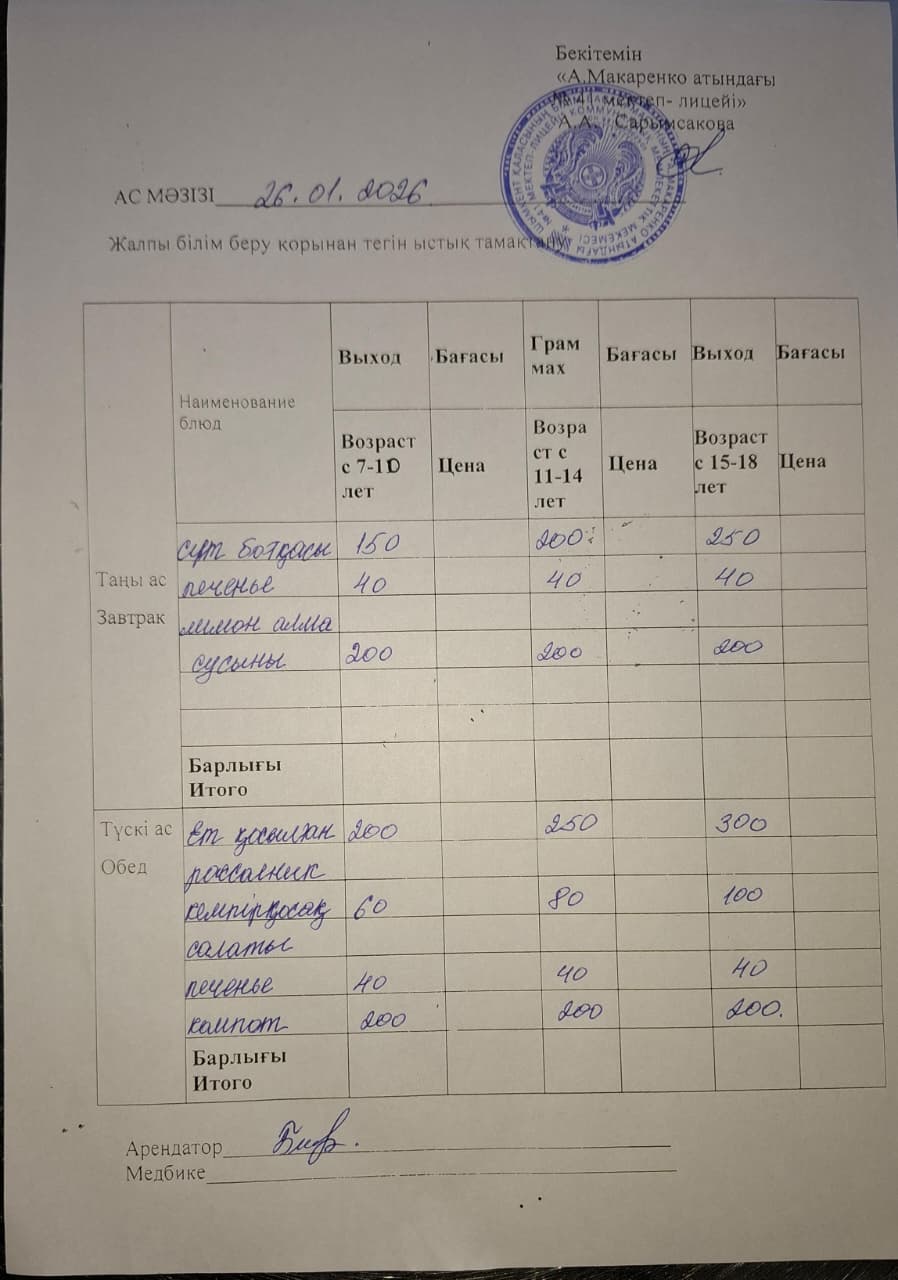 Бекітемін
«А.Макаренко атындағы
№41 мектеп- лицейі»
А.А. Сарымсакова
АС МӘЗІЗІ 26.01.2026
Жалпы білім беру қорынан тегін ыстық тамақтану
Наименование блюд
Выход Бағасы Грам мах Бағасы Выход Бағасы
Возраст с 7-10 лет Цена Возра ст с 11-14 лет Цена Возраст с 15-18 лет Цена
Таңы ас
Завтрак
сүт ботқасы 150 200 250
печенье 40 40 40
лимон алма
сусыны 200 200 200
Барлығы
Итого
Түскі ас
Обед
Ет қосылған 200 250 300
рассольник
кемпірқосақ 60 80 100
салаты
печенье 40 40 40
компот 200 200 200.
Барлығы
Итого
Арендатор
Медбике